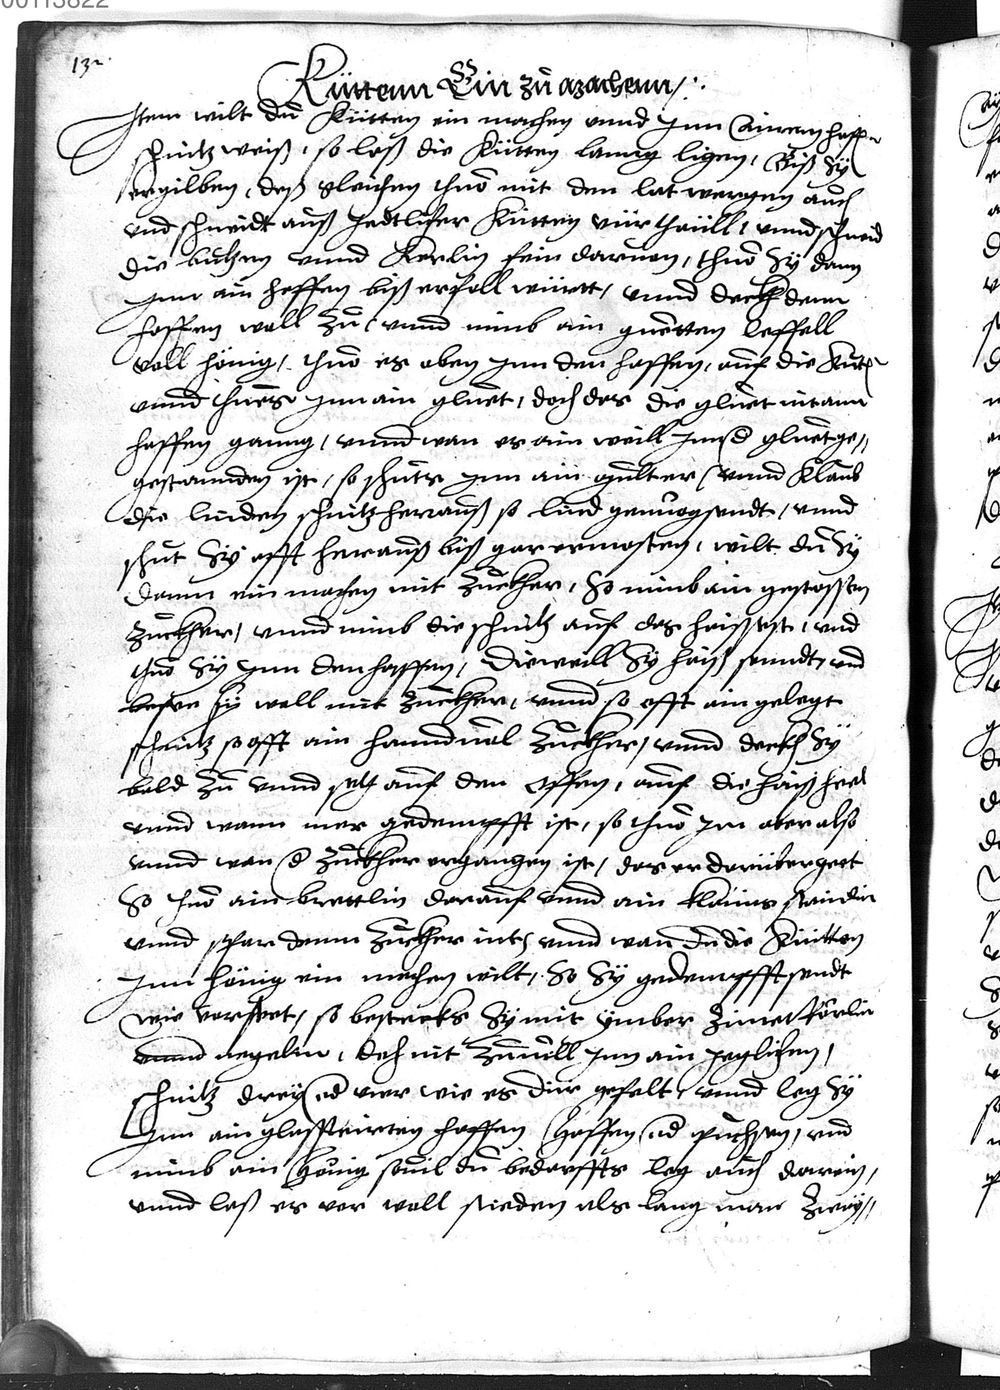 00113822
132.
Küttenn Ein zů machenn /:
Item wilt du Kütten ein machen vnnd Inn Ainem haffen
schnitz weiß, so laß die Kütten lanng ligen, Biß Sÿ
ergilben, deß gleichen thuo mit den lat wergen auch
vnd schneidt auß Jedtlicher Kütten vier thaill, vnnd schneid
die butzen vnnd Kerlin fein daruon, thuo Sÿ dann
Inn ain heffen biß er foll württ, vnnd deckh denn
haffen woll zů, vnnd nimb ain guetten leffell
voll hönig, thuo es oben Inn den haffen, auf die Kütten
vnnd thues Inn ain gluet, doch das die gluet nit ann
haffen ganng, vnnd wan es ain weill Inn d gluet ge„
gestannden ist, so schüts Inn ain gulter vnnd Klaub
die linden schnitz herauß so lind genuog sendt, vnnd
schüt Sÿ offt herauß biß gar ermosten, wilt du Sÿ
dann ein machen mit Zuckher, So nimb ain gestossen
Zuckher, vnnd nimb die schnitz auf das haissest, vnd
thuo Sÿ Inn den haffen, Dieweill Sÿ haiß senndt, vnd
besee sÿ woll mit Zuckher, vnnd so offt ain gelegt
schnitz so offt ain hanndvol Zuckher, vnnd deckh Sÿ
bald zů vnnd setz auf den Offen, auf die haiß herd
vnnd wann mer gedempfft ist, so thuo Im aber also
vnnd wan d Zuckher ergangen ist, das er darüber geet
So thuo ain brettlin darauf vnnd ain klains stainlin
vnnd spar denn Zuckher nit, vnnd wan du die Kütten
Inn hönig ein machen wilt, So Sÿ gedempfft sendt
wie vorstet, so besteckhs Sÿ mit ÿmber Zimet Rörlin
vnnd negelin, doch nit Zuuill Inn ain Jeglichen,
schnitz dreÿ od vier wie es dir gefelt, vnnd leg Sÿ
Inn ain glassteurten haffen Haffen od püchsen, vnd
nimb ain Hönig souil du bedarffts leg auch darein,
vnnd laß es vor woll sieden als lang man Zwaÿ„